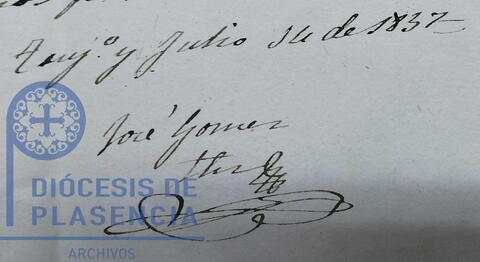 Truj.º y Julio 14 de 1837
José Gomez
DIÓCESIS DE
PLASENCIA
ARCHIVOS